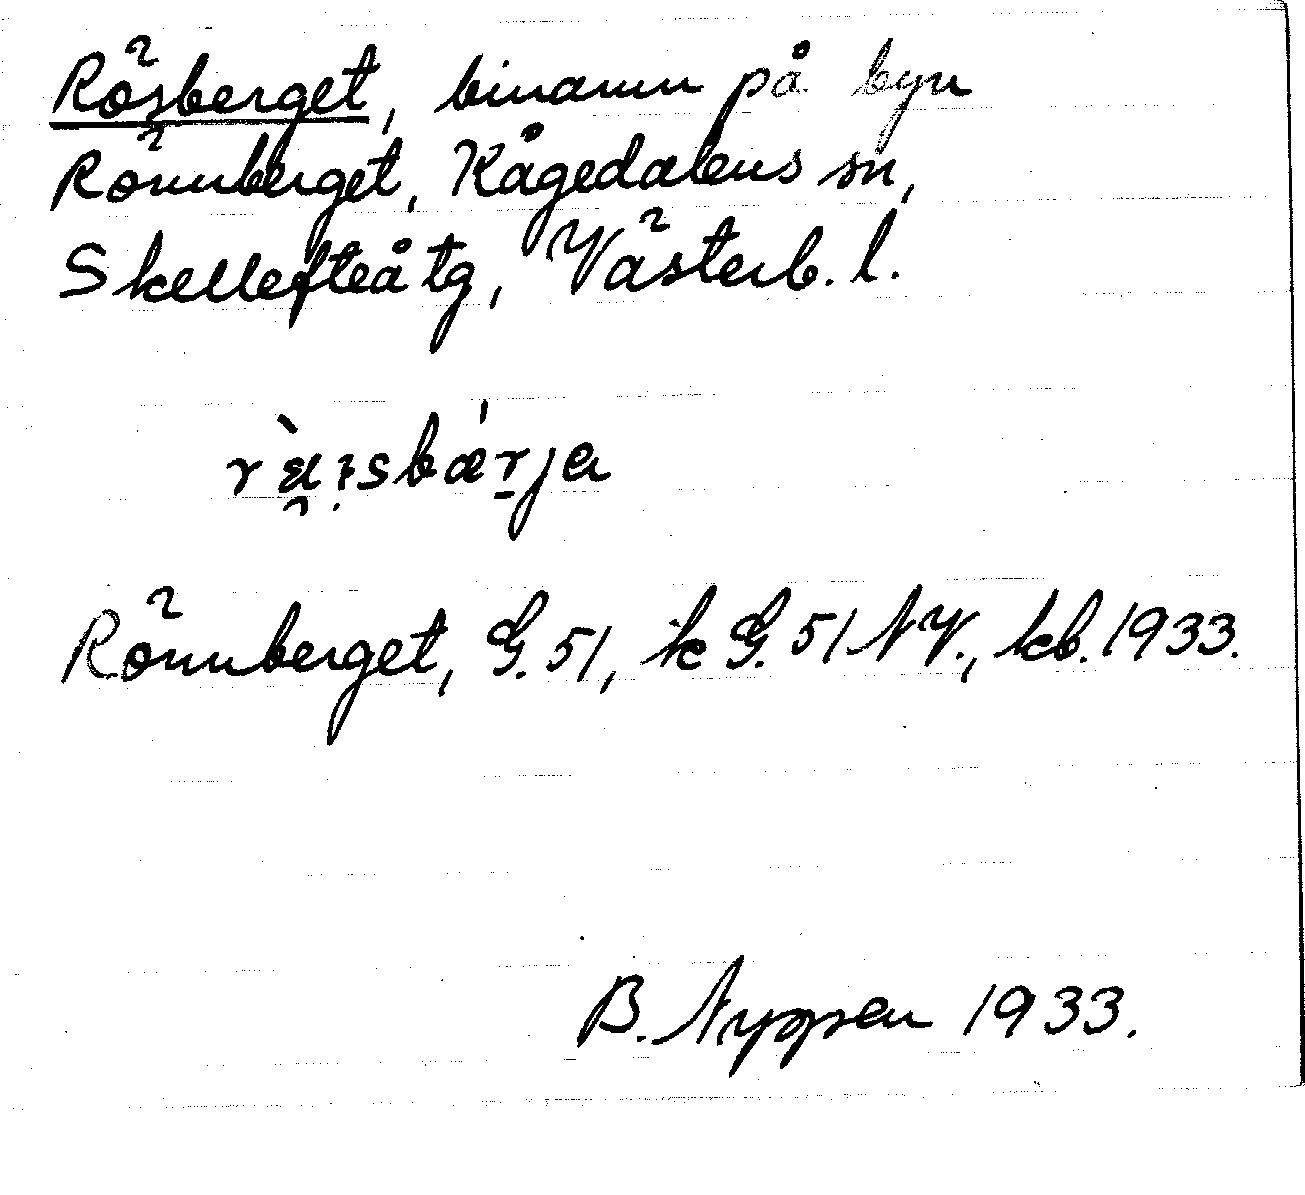 Rösberget, binamn på byn
Rönnberget, Kågedalens sn,
Skellefteå tg, Västerb. l.
Rönnberget, G. 51, k G. 51 NV., kb. 1933.
B. 1933.